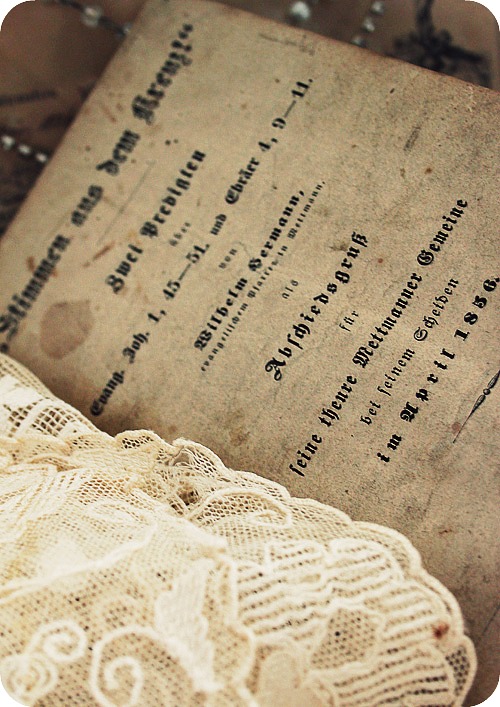 Stimmen aus dem
Zwei Predigten
über
Evang. Joh. 1, 45—51. und Ebräer 4, 9—11.
von
Wilhelm Hermann,
evangelischem Pfarrer in Mettmann,
als
Abschiedsgruß
für
seine theure Mettmanner Gemeine
bei seinem Scheiden
im April 1856.